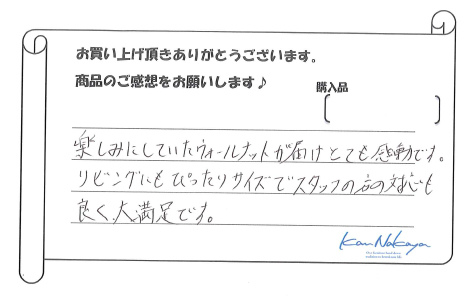 お買い上げ頂きありがとうございます。
商品のご感想をお願いします♪
購入品
楽しみにしていたウォールナットが届けとても感動です。
リビングにもぴったりサイズでスタッフの方の対応も
良く、大満足です。
Kan Nakaya